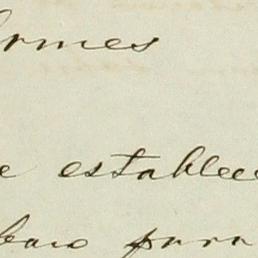 ormes
e establec
para